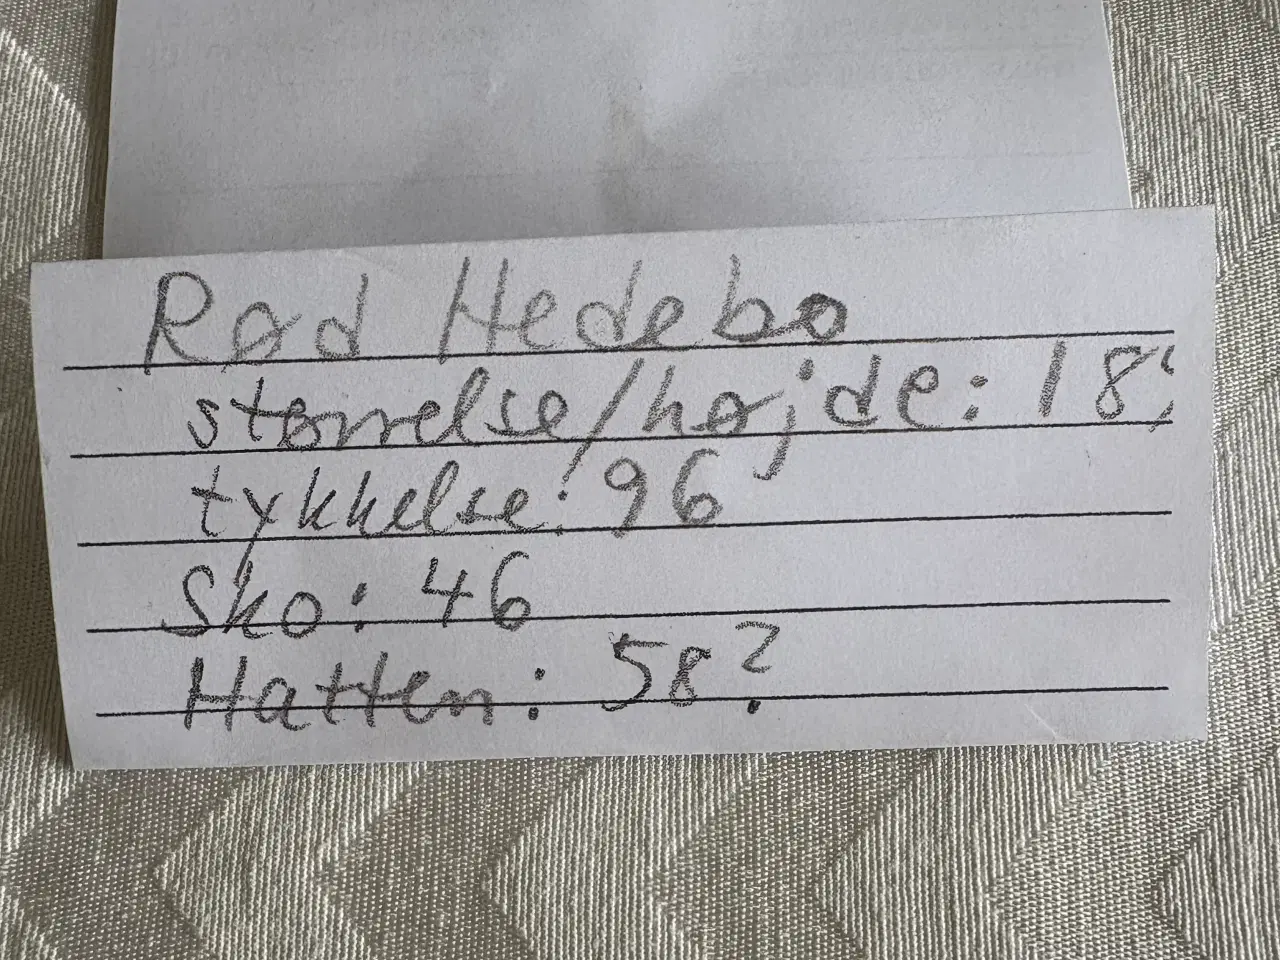 Rød Hedebo
størrelse/højde: 18
tykkelse: 96
Sko: 46
Hatten: 58?